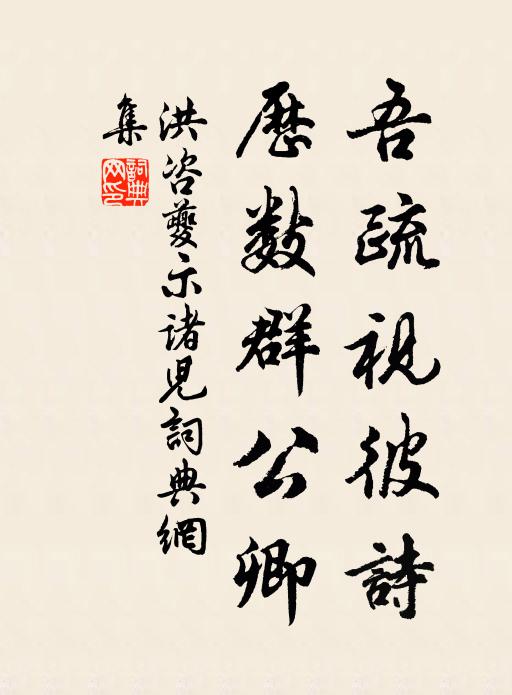 吾疏視彼詩
歷數群公卿
洪咨夔示諸兒詞典網
集
詞典網印